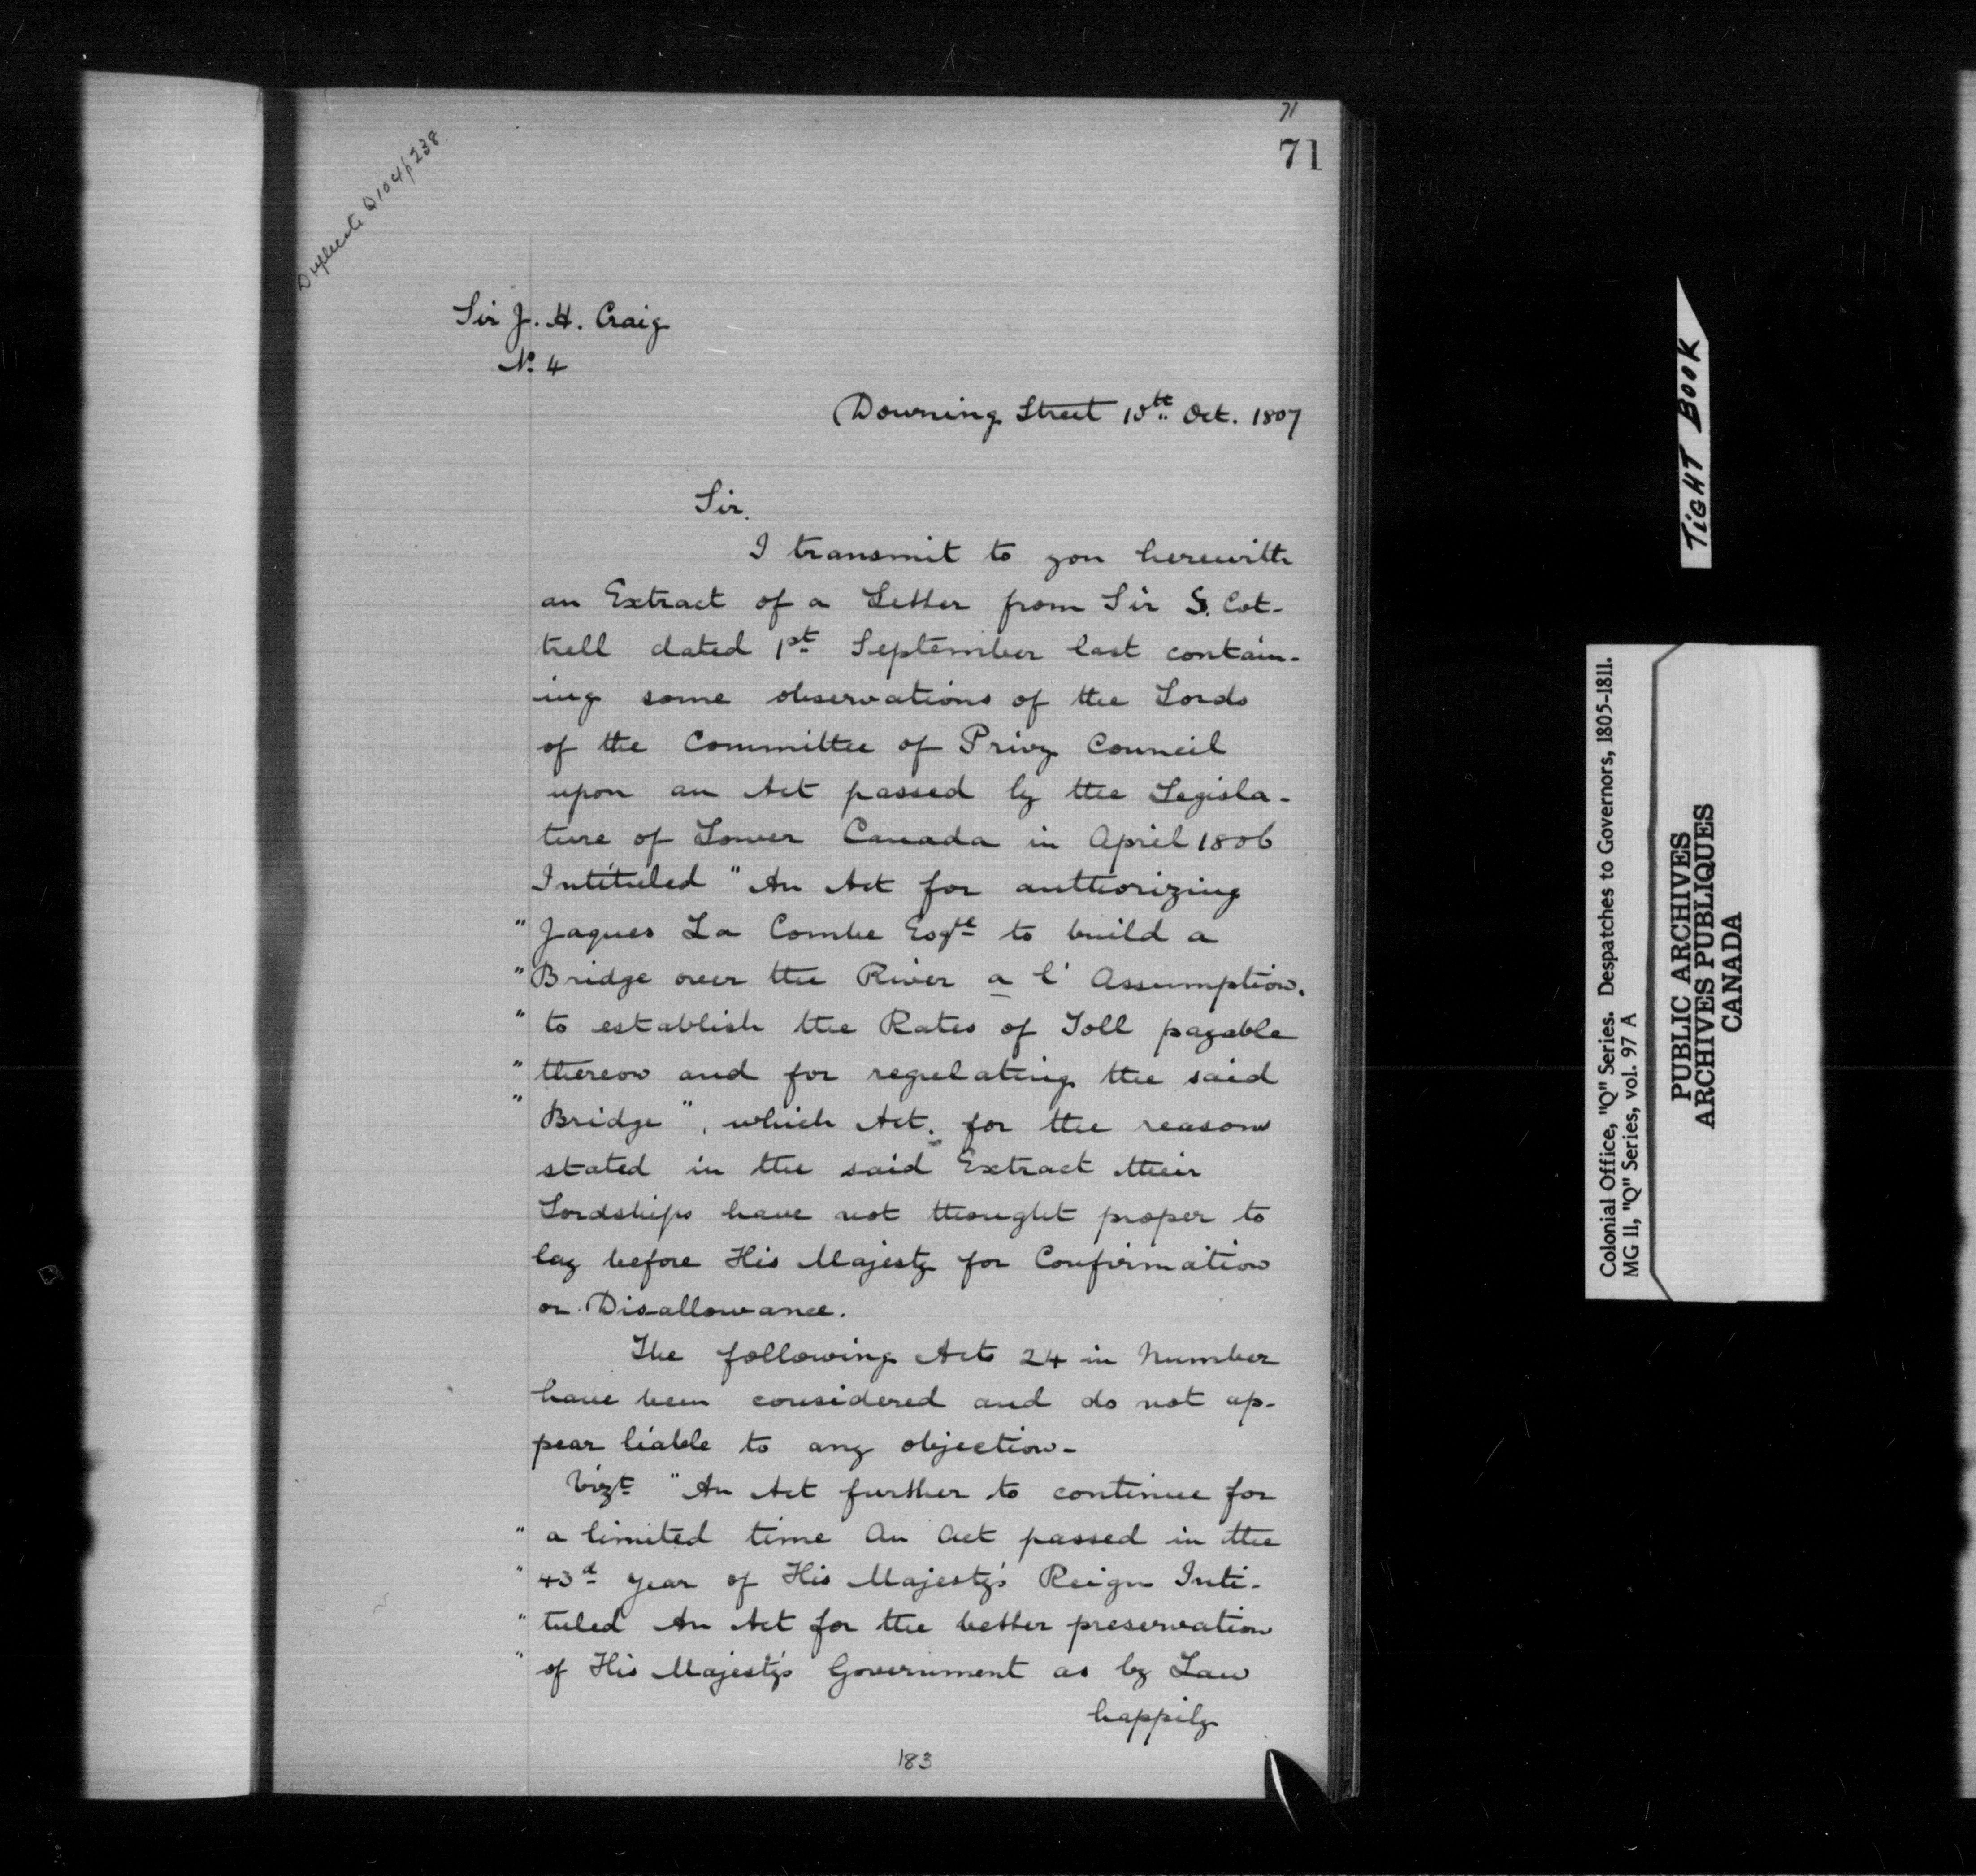 71
71
Duplicate Q 104 p 238.
Sir J. H. Craig
No. 4
Downing Street 10th Oct. 1807
Sir.
I transmit to you herewith
an Extract of a Letter from Sir S. Cot-
trell dated 1st September last contain-
ing some observations of the Lords
of the Committee of Privy Council
upon an Act passed by the Legisla-
ture of Lower Canada in April 1806
Intituled "An Act for authorizing
" Jaques La Combe Esqre to build a
" Bridge over the River a l' Assumption.
" to establish the Rates of Toll payable
" thereon and for regulating the said
" Bridge", which Act. for the reasons
stated in the said Extract their
Lordships have not thought proper to
lay before His Majesty for Confirmation
or Disallowance.
The following Acts 24 in Number
have been considered and do not ap-
pear liable to any objection-
Vizt "An Act further to continue for
" a limited time An Act passed in the
" 43d year of His Majesty's Reign Inti-
" tuled An Act for the better preservation
" of His Majesty's Government as by Law
happily
183
TIGHT BOOK
Colonial Office, "Q" Series. Despatches to Governors, 1805-1811.
MG 11, "Q" Series, vol. 97 A
PUBLIC ARCHIVES
ARCHIVES PUBLIQUES
CANADA